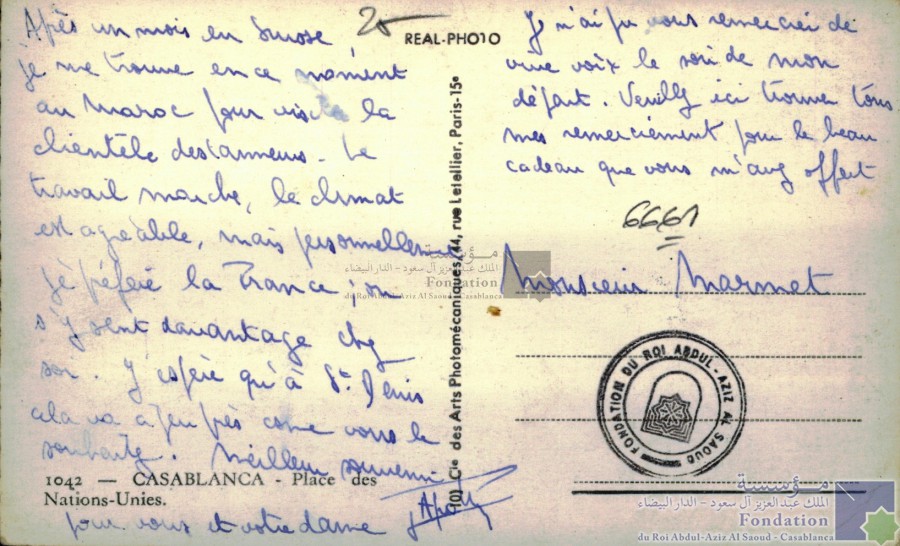 Après un mois en Suisse
je me trouve en ce moment
au Maroc pour visiter la
clientèle des tanneurs. Le
travail marche, le climat
est agréable, mais personnellement
je préfère la France ; on
s'y sent davantage chez
soi. J'espère qu'à St Denis
cela va à peu près comme vous le
souhaitez. Meilleur souvenir
pour vous et votre dame
25
REAL-PHOTO
Je n'ai pu vous remercier de
vive voix le soir de mon
départ. Veuillez ici trouver tous
mes remerciement pour le beau
cadeau que vous m'avez offert
6661
Monsieur Marmet
1042 — CASABLANCA - Place des
Nations-Unies.
Cie des Arts Photomécaniques, 44, rue Letellier, Paris-15e
FONDATION DU ROI ABDUL-AZIZ AL SAOUD
مؤسسة
الملك عبد العزيز آل سعود - الدار البيضاء
Fondation
du Roi Abdul-Aziz Al Saoud - Casablanca
مؤسسة
الملك عبد العزيز آل سعود - الدار البيضاء
Fondation
du Roi Abdul-Aziz Al Saoud - Casablanca